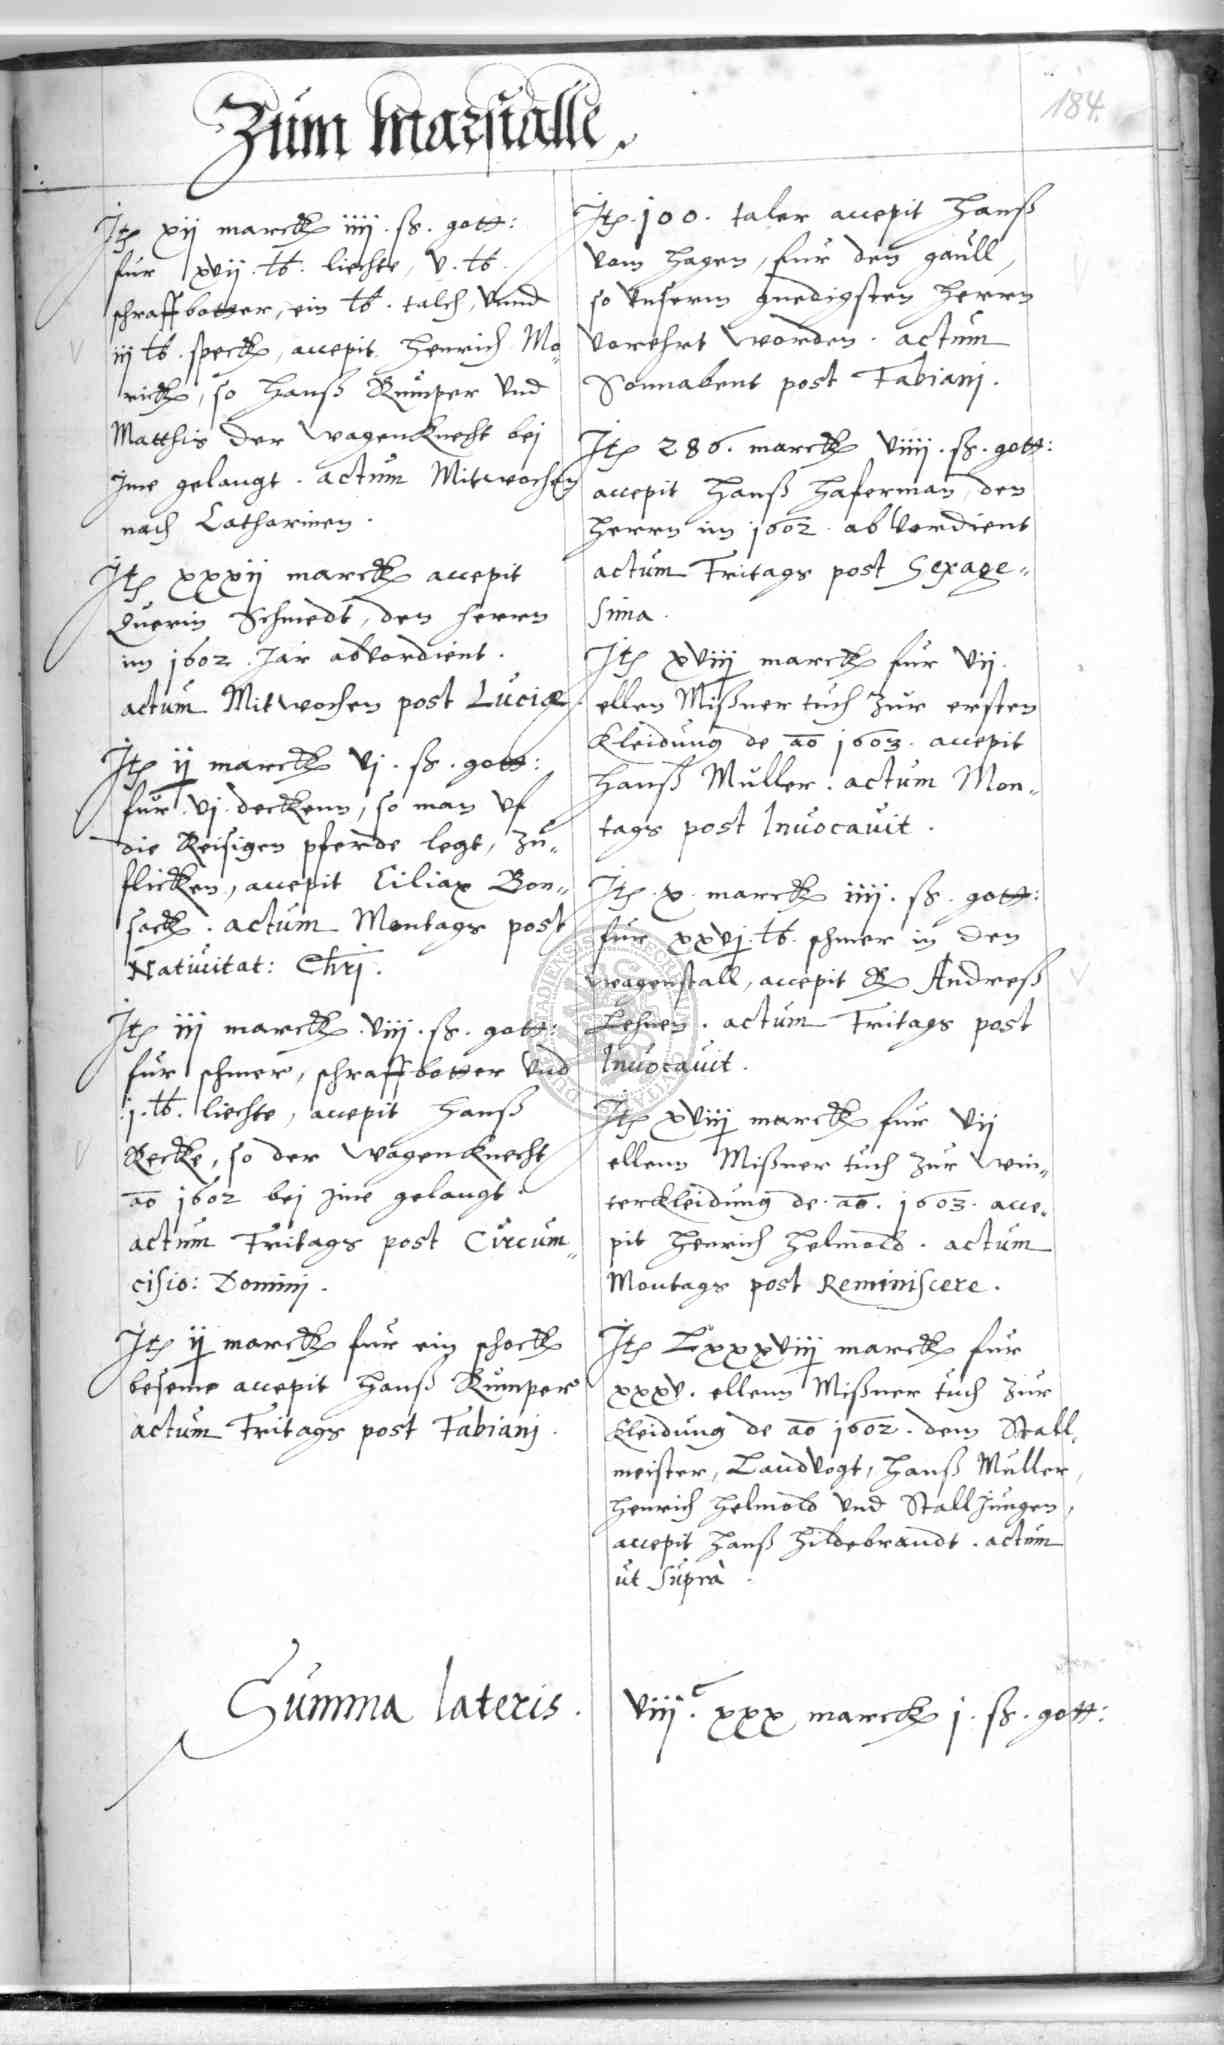 184.
Zum Marstalle.
Itē xij marck iiij. ss. gott:
fur xvij. lb. liechte, v. lb.
schraffbotter, ein lb. talch, vnnd
iij lb. speck, accepit Henrich Mo-
rick, so Hanß Rümper vnd
Matthis der wagenknecht bei
jme gelangt. actum Mitwochen
nach Catharinen.
Itē xxxij marck accepit
Querin Schmedt, den herrn
im 1602. Jar abvordient.
actum Mitwochen post Luciæ
Itē ij marck vj. ss. gott:
fur vj. deckenn, so man vf
die Reisigen pferde legt, zu-
flicken, accepit Ciliax Bon-
sack. actum Montags post
Nativitat: Chrj.
Itē iij marck. viij. ss. gott:
für schmer, schraffbotter vnd
j. lb. liechte, accepit Hanß
Recke, so der wagenknecht
ao 1602 bej jme gelangt.
actum Fritags post Circum-
cisio: Dominj.
Itē ij marck fur ein schock
beseme accepit Hanß Rümper
actum Fritags post Fabianj.
Itē. 100. taler accepit Hanß
vom Hagen, fur den gaull,
so vnserm gnedigsten Herrn
vorehrt worden. actum
Sonnabent post Fabianj.
Itē 286. marck viiij. ss. gott:
accepit Hanß Haferman, den
Herrn im 1602. abvordient
actum Fritags post Sexage-
sima.
Itē xviij marck fur vij.
ellen Mißner tuch zur ersten
Kleidung de ao 1603. accepit
Hanß Muller. actum Mon-
tags post Invocavit.
Itē. x. marck iiij. ss. gott:
fur xxvj. lb. schmer in den
wagenstall, accepit Er Andreß
Lehnen. actum Fritags post
Invocavit.
Itē xviij marck fur vij
ellenn Mißner tuch zur win-
terkleidung de. ao. 1603. acce-
pit Henrich Helmold. actum
Montags post Reminiscere.
Itē Lxxxviij marck fur
xxxv. ellenn Mißner tuch zur
Kleidung de ao 1602. dem Stall-
meister, Landvogt, Hanß Muller,
Henrich Helmold vnd Stalljungen,
accepit Hanß Hildebrandt. actum
ut supra.
Summa lateris. viij.c xxx marck j. ss. gott: